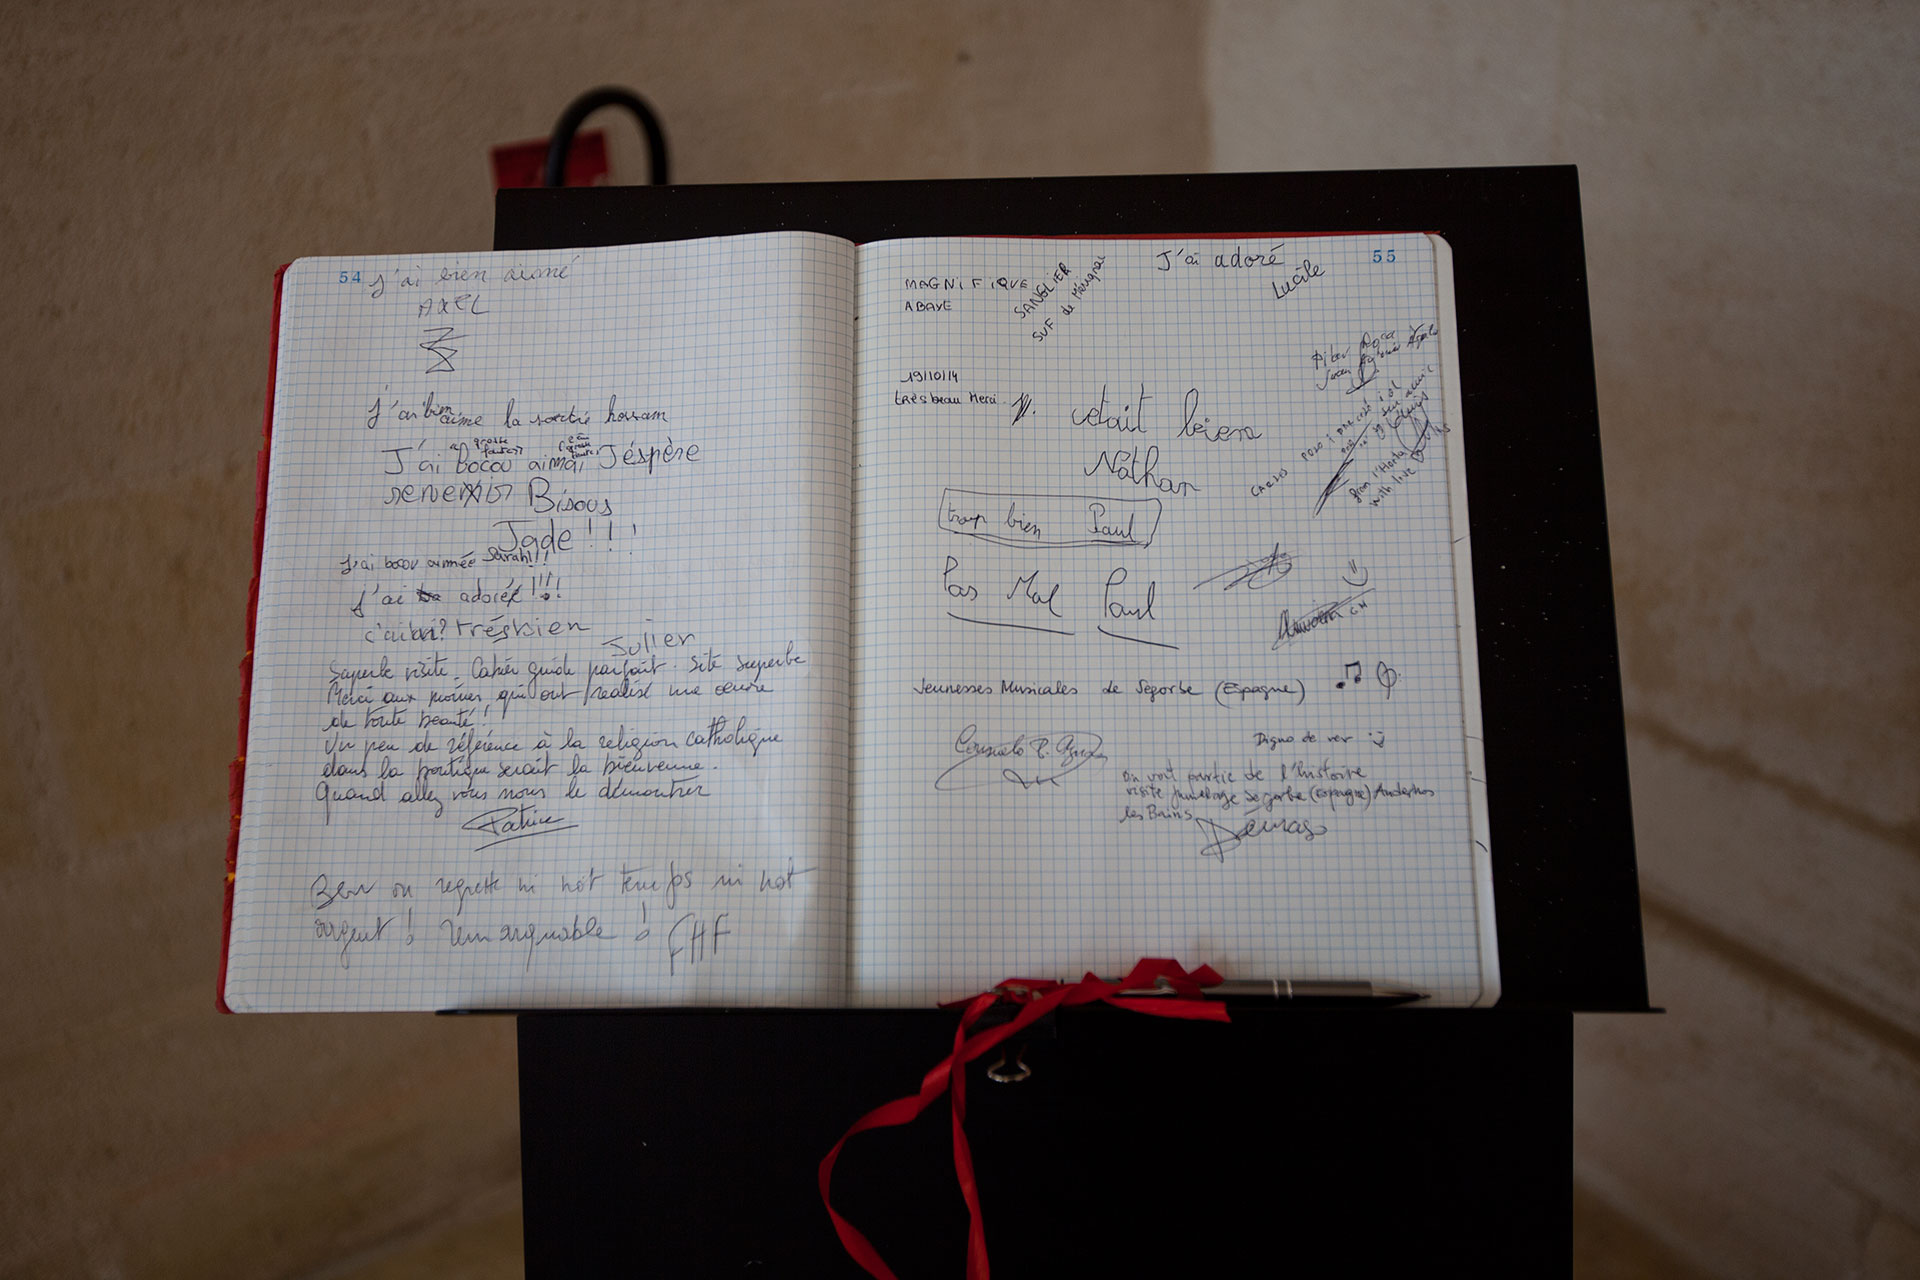 54
J'ai bien aimé
AXEL
J'ai bien aimé la sortie hossam
"grosse faute"
J'ai bocou aimai J'éspère
revenir Bisous
Jade!!!
J'ai bocou aimée Sarah!!
J'ai adorée!!!!
c'ai trésbien
Julier
Superbe visite. Cahier guide parfait. Site superbe
Merci aux moines qui ont réalisé une œuvre
de toute beauté!
Un peu de référence à la religion catholique
dans la serait la bienvenue.
Quand allez vous nous le démontrer
on regrette ni not temps ni not
argent! remarquable! FHF
55
J'ai adoré
Lucile
MAGNIFIQUE
ABAYE
SANGLIER
SUF de Mérignac
19/10/14
très beau Merci.
cetait bien
Nathan
trop bien Paul
Pas Mal Paul
CARLOS
with love
Jeunesses Musicales de Segorbe (Espagne)
Consuelo P.
Digno de ver
on voit partie de l'histoire
visite Segorbe (Espagne) Andernos
les Bains